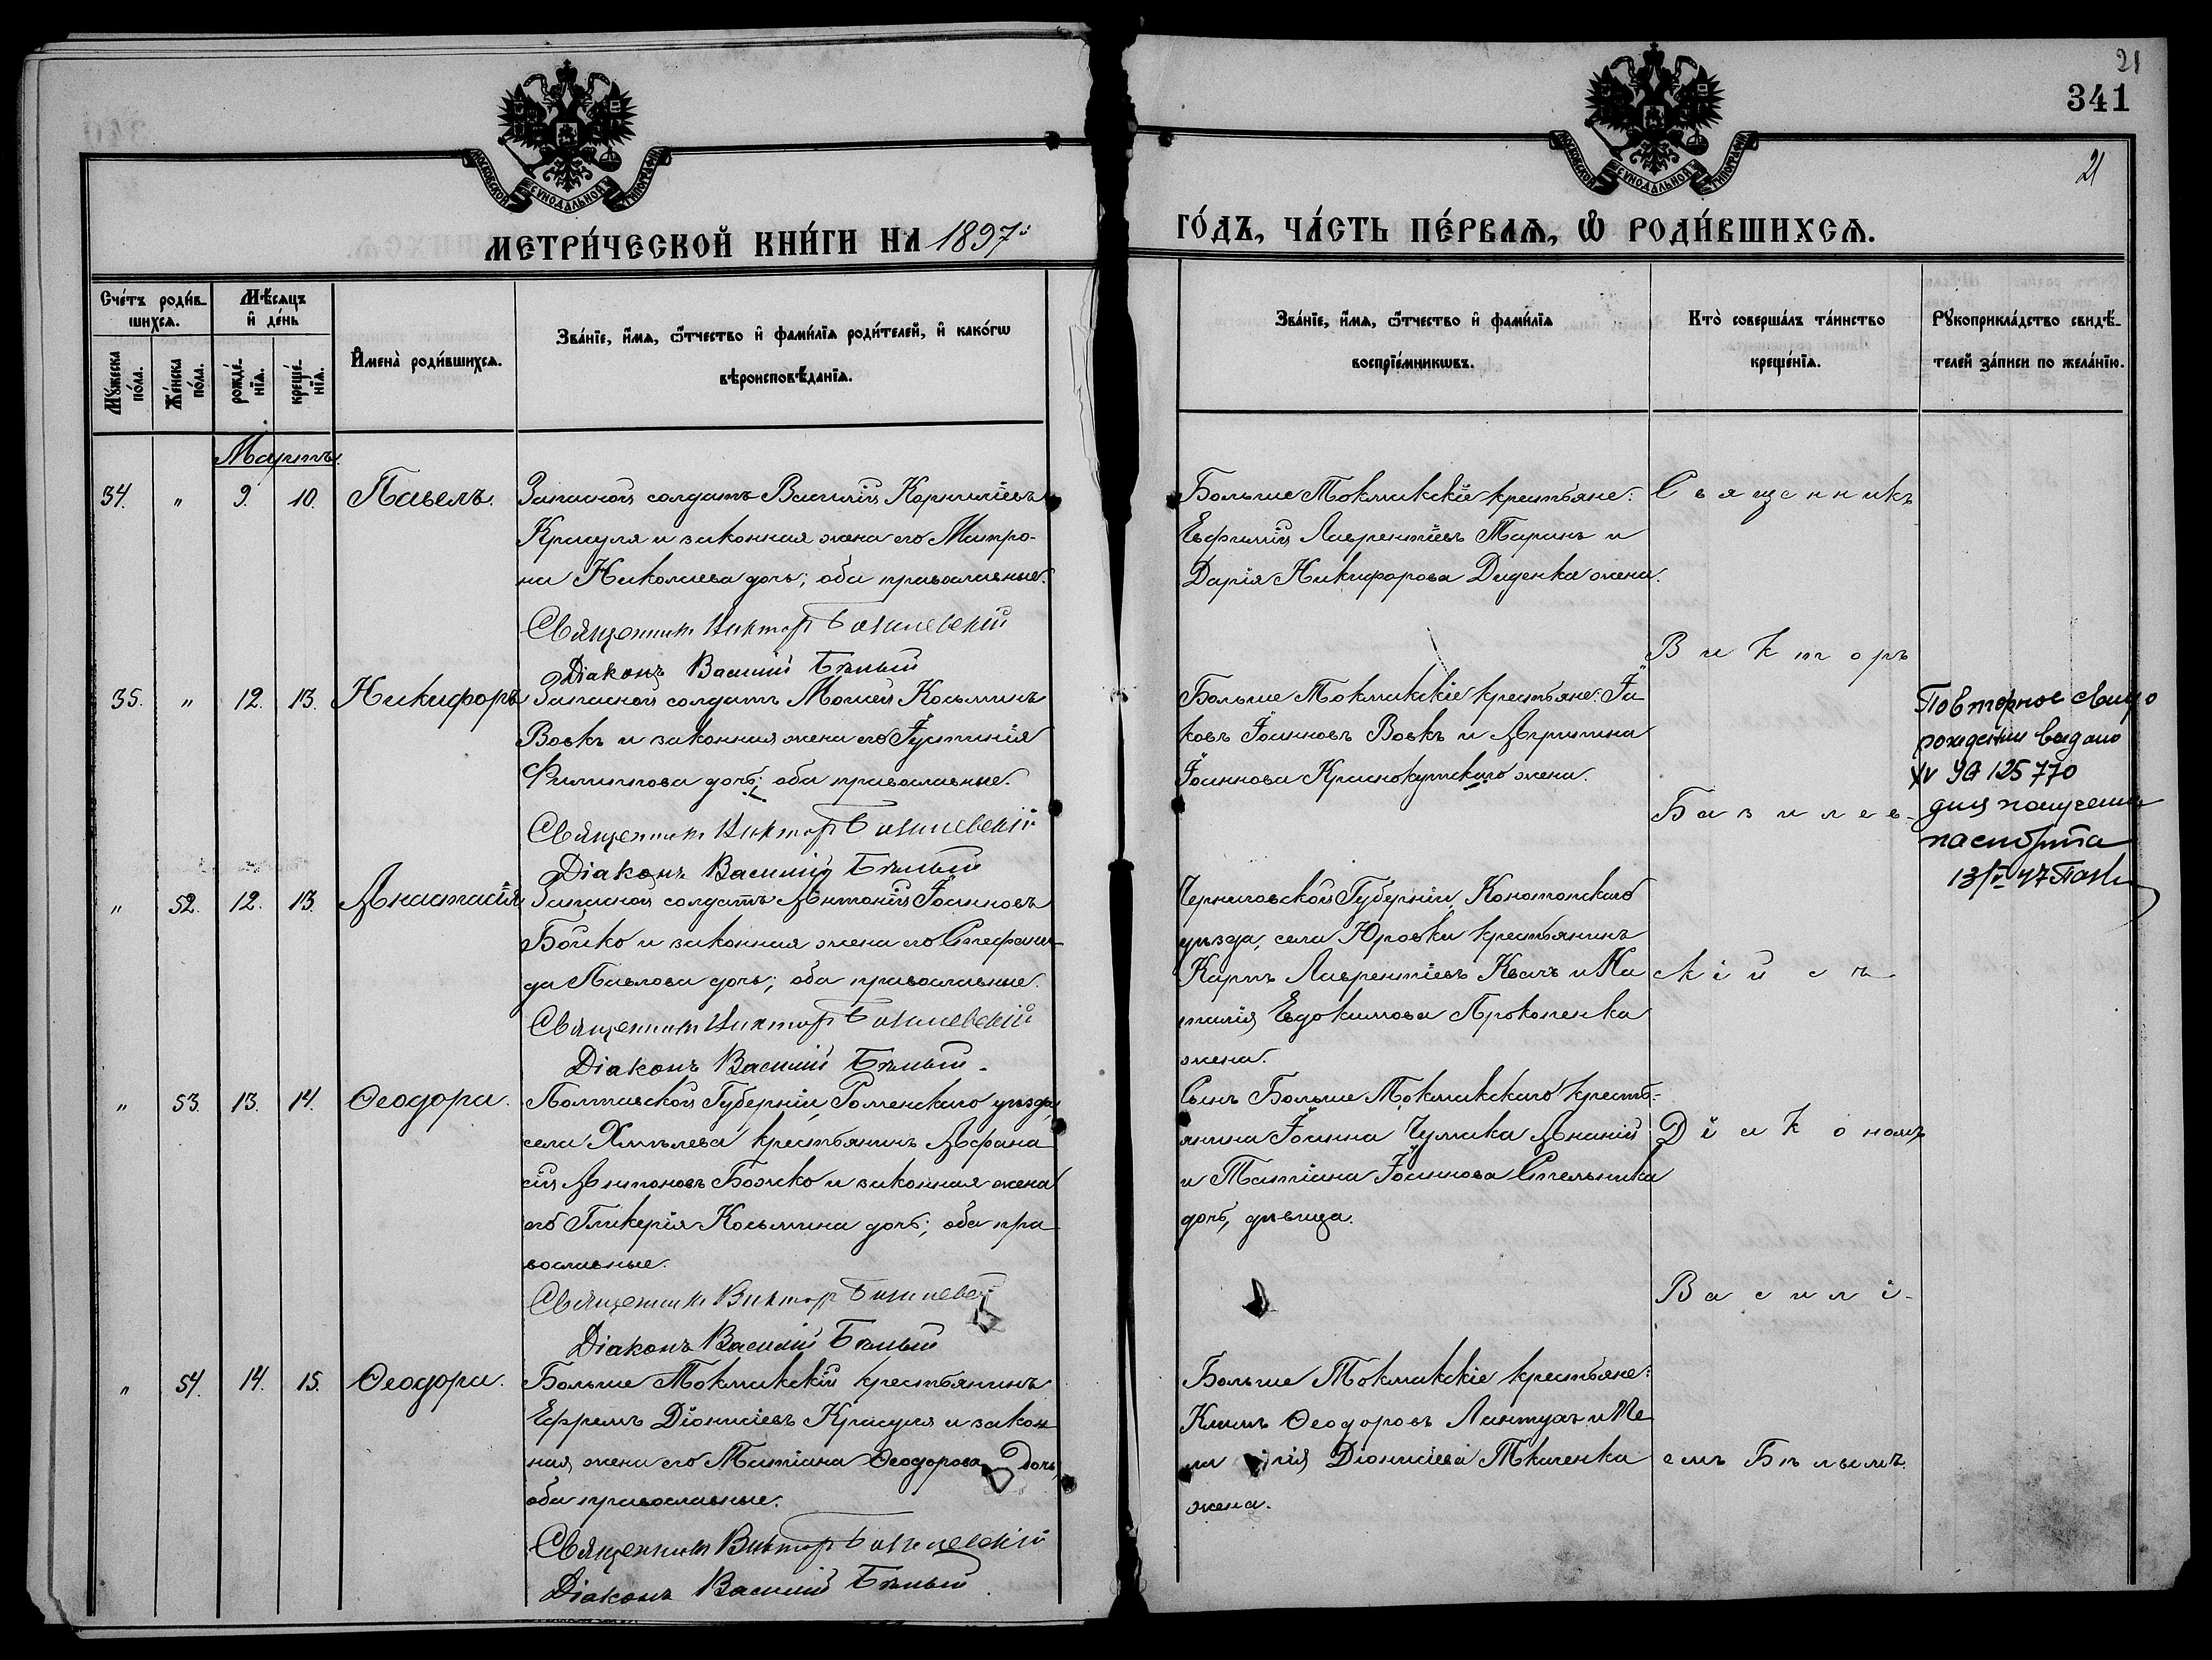 21
341
21
МОСКОВСКОЙ СУНОДАЛЬНОЙ ТИПОГРАФІИ
МОСКОВСКОЙ СУНОДАЛЬНОЙ ТИПОГРАФІИ
МЕТРИ́ЧЕСКОЙ КНИ́ГИ НА 1897й
ГО́ДЪ, ЧА́СТЬ ПЕ́РВАѦ, Ѡ РОДИ́ВШИХСѦ.
Сче́тъ роди́в-
шихсѧ.
Мѣ́сѧцъ
и҆ де́нь
Мꙋ́жеска по́ла.
Же́нска по́ла.
рожде́-
нїѧ.
креще́-
нїѧ.
И҆мена̀ роди́вшихсѧ.
Зва́нїе, и҆́мѧ, ѻ҆́тчество и҆ фами́лїѧ роди́телей, и҆ како́гѡ
вѣроисповѣ́данїѧ.
Зва́нїе, и҆́мѧ, ѻ҆́тчество и҆ фами́лїѧ
воспрїе́мникѡвъ.
Кто̀ соверша́лъ та́инство
креще́нїѧ.
Рꙋкоприкла́дство свидѣ́-
телей за́писи по жела́нїю.
Мартъ.
34. " 9. 10. Павелъ. Запасной солдатъ Василій Корниліевъ
Красуля и законная жена его Матро-
на Николаева дочь; оба православные.
Священникъ Викторъ Базилевскій
Діаконъ Василій Бѣлый
Больше Токмакскіе крестьяне:
Евфимій Лаврентіевъ Таранъ и
Дарія Никифорова Диденка жена.
Священникъ
Викторъ
35. " 12. 13. Никифоръ Запасной солдатъ Моисей Косьминъ
Вовкъ и законная жена его Іустинія
Филиппова дочь; оба православные.
Священникъ Викторъ Базилевскій
Діаконъ Василій Бѣлый
Больше Токмакскіе крестьяне: Іа
ковъ Іоанновъ Вовкъ и Агриппина
Іоаннова Краснокутскаго жена.
Базилев-
Повторное свид о
рождении выдано
125770
для получения
паспорта
" 52. 12. 13. Анастасія Запасной солдатъ Антоній Іоанновъ
Бойко и законная жена его Стефани-
да Павлова дочь; оба православные.
Священникъ Викторъ Базилевскій
Діаконъ Василій Бѣлый.
Черниговской Губерніи, Конотопскаго
уѣзда, села Юровки крестьянинъ
Карпъ Лаврентіевъ Квачъ и На
талія Евдокимова Прокопенка
жена.
кій съ
" 53. 13. 14. Ѳеодора. Полтавской Губерніи, Роменскаго уѣзда,
села Хмѣлева крестьянинъ Афана
сій Антоновъ Божко и законная жена
его Гликерія Косьмина дочь; оба пра
вославные.
Священникъ Викторъ Базилевскій
Діаконъ Василій Бѣлый
Сынъ Больше Токмакскаго кресть-
янина Іоанна Чумака Ананій
и Татіана Іоаннова Стельника
дочь, дѣвица.
Діакономъ
Василі-
" 54. 14. 15. Ѳеодора. Больше Токмакскій крестьянинъ
Ефремъ Діонисіевъ Красуля и закон
ная жена его Татіана Ѳеодорова дочь,
оба православные.
Священникъ Викторъ Базилевскій
Діаконъ Василій Бѣлый.
Больше Токмакскіе крестьяне:
Климъ Ѳеодоровъ и
Діонисіева Ткаченка
жена.
емъ Бѣлымъ.